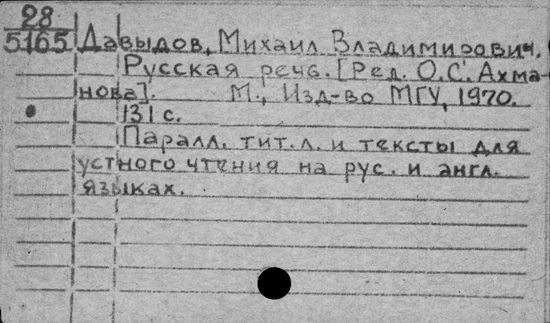 28
5165 Давыдов, Михаил Владимирович.
Русская речь. [Ред. О.С. Ахма-
нова]. М., Изд-во МГУ, 1970.
131 с.
Паралл. тит. л. и тексты для
устного чтения на рус. и англ.
языках.